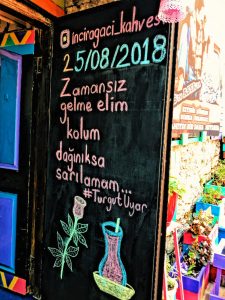 inciragaci_kahvesi
25/08/2018
Zamansız
gelme elim
kolum
dağınıksa
sarılamam...
#TurgutUyar